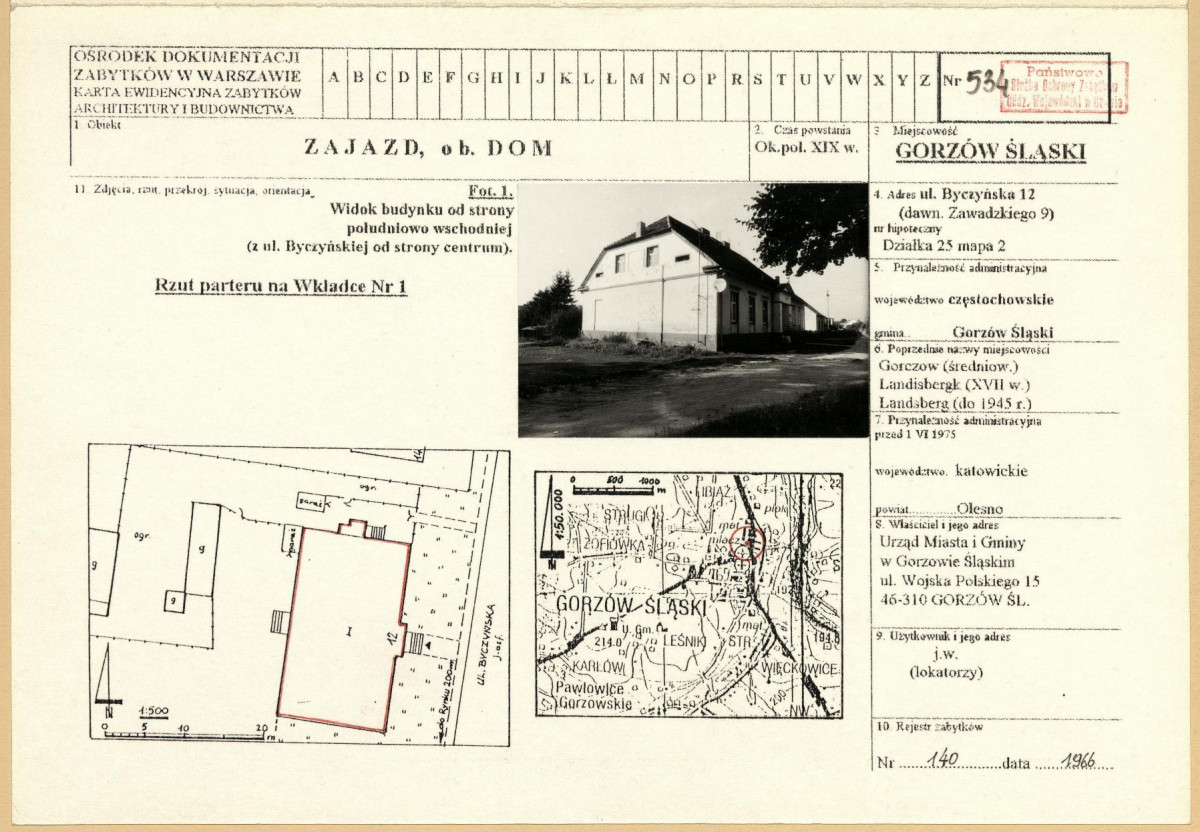 OŚRODEK DOKUMENTACJI
ZABYTKÓW W WARSZAWIE
KARTA EWIDENCYJNA ZABYTKÓW
ARCHITEKTURY I BUDOWNICTWA
A B C D E F G H I J K L Ł M N O P R S T U V W X Y Z
Nr 534
Państwowa
Służba Ochrony Zabytków
1 Obiekt
ZAJAZD, ob. DOM
2. Czas powstania
Ok.poł. XIX w.
3 Miejscowość
GORZÓW ŚLĄSKI
11. Zdjęcia, rzut, przekrój, sytuacja, orientacja
Fot. 1.
Widok budynku od strony
południowo wschodniej
(z ul. Byczyńskiej od strony centrum).
Rzut parteru na Wkładce Nr 1
4. Adres ul. Byczyńska 12
(dawn. Zawadzkiego 9)
nr hipoteczny
Działka 25 mapa 2
5. Przynależność administracyjna
województwo częstochowskie
gmina.. Gorzów Śląski
6. Poprzednie nazwy miejscowości
Gorczow (średniow.)
Landisbergk (XVII w.)
Landsberg (do 1945 r.)
7. Przynależność administracyjna
przed 1 VI 1975
województwo. katowickie
powiat..............Olesno
8. Właściciel i jego adres
Urząd Miasta i Gminy
w Gorzowie Śląskim
ul. Wojska Polskiego 15
46-310 GORZÓW ŚL.
9. Użytkownik i jego adres
j.w.
(lokatorzy)
10. Rejestr zabytków
Nr ......140..........data .......1966....
14
ogr.
garaż
ogr.
g
g
g
I
12
UL. BYCZYŃSKA
j. asf.
do Rynku 200m
N
1:500
0 5 10 20
m
0 500 1000
m
1:50 000
N
IBIAŻ
22
STRUGI
płok
met
ZOFIÓWKA
GORZÓW ŚLĄSKI
u. Gm.
214.0
LEŚNIKI
STR
met
194.8
KARŁÓW
WIĘCKOWICE
Pawłowice
Gorzowskie
200
NW